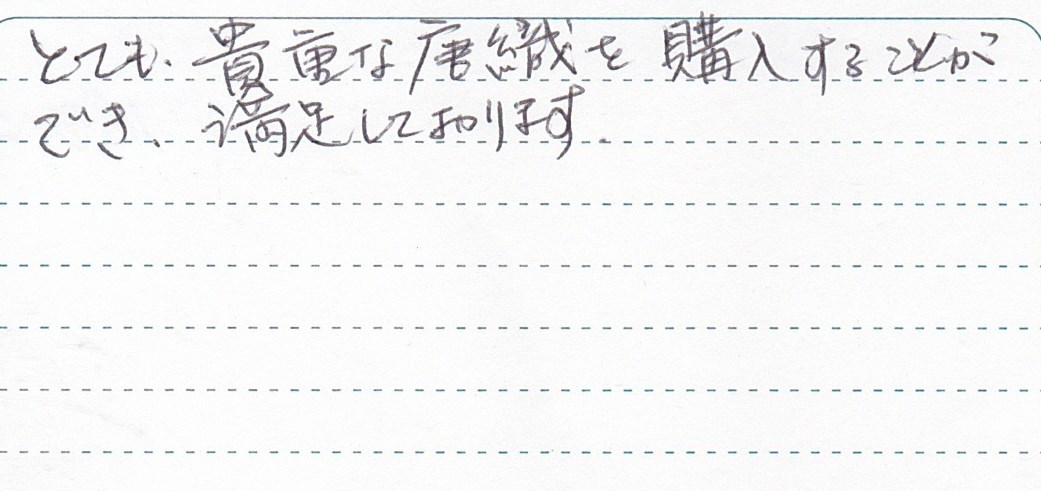 とても、貴重な唐織を購入することが
でき、満足しております.